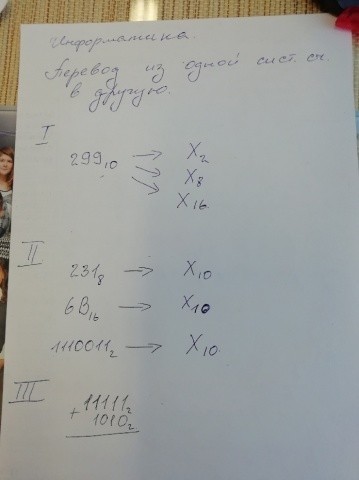 Информатика.
Перевод из одной сист. сч.
в другую.
I
299₁₀ → X₂
→ X₈
→ X₁₆
II
231₈ → X₁₀
6B₁₆ → X₁₀
1110011₂ → X₁₀.
III
+ 11111₂
1010₂